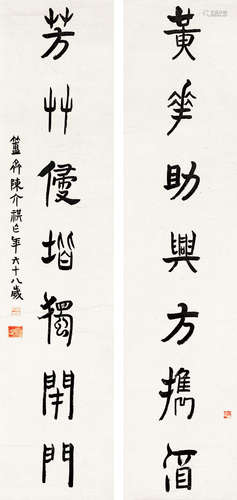 黃華助興方攜
芳艸侵堦獨閉門
簠齋陳介祺年六十八歲